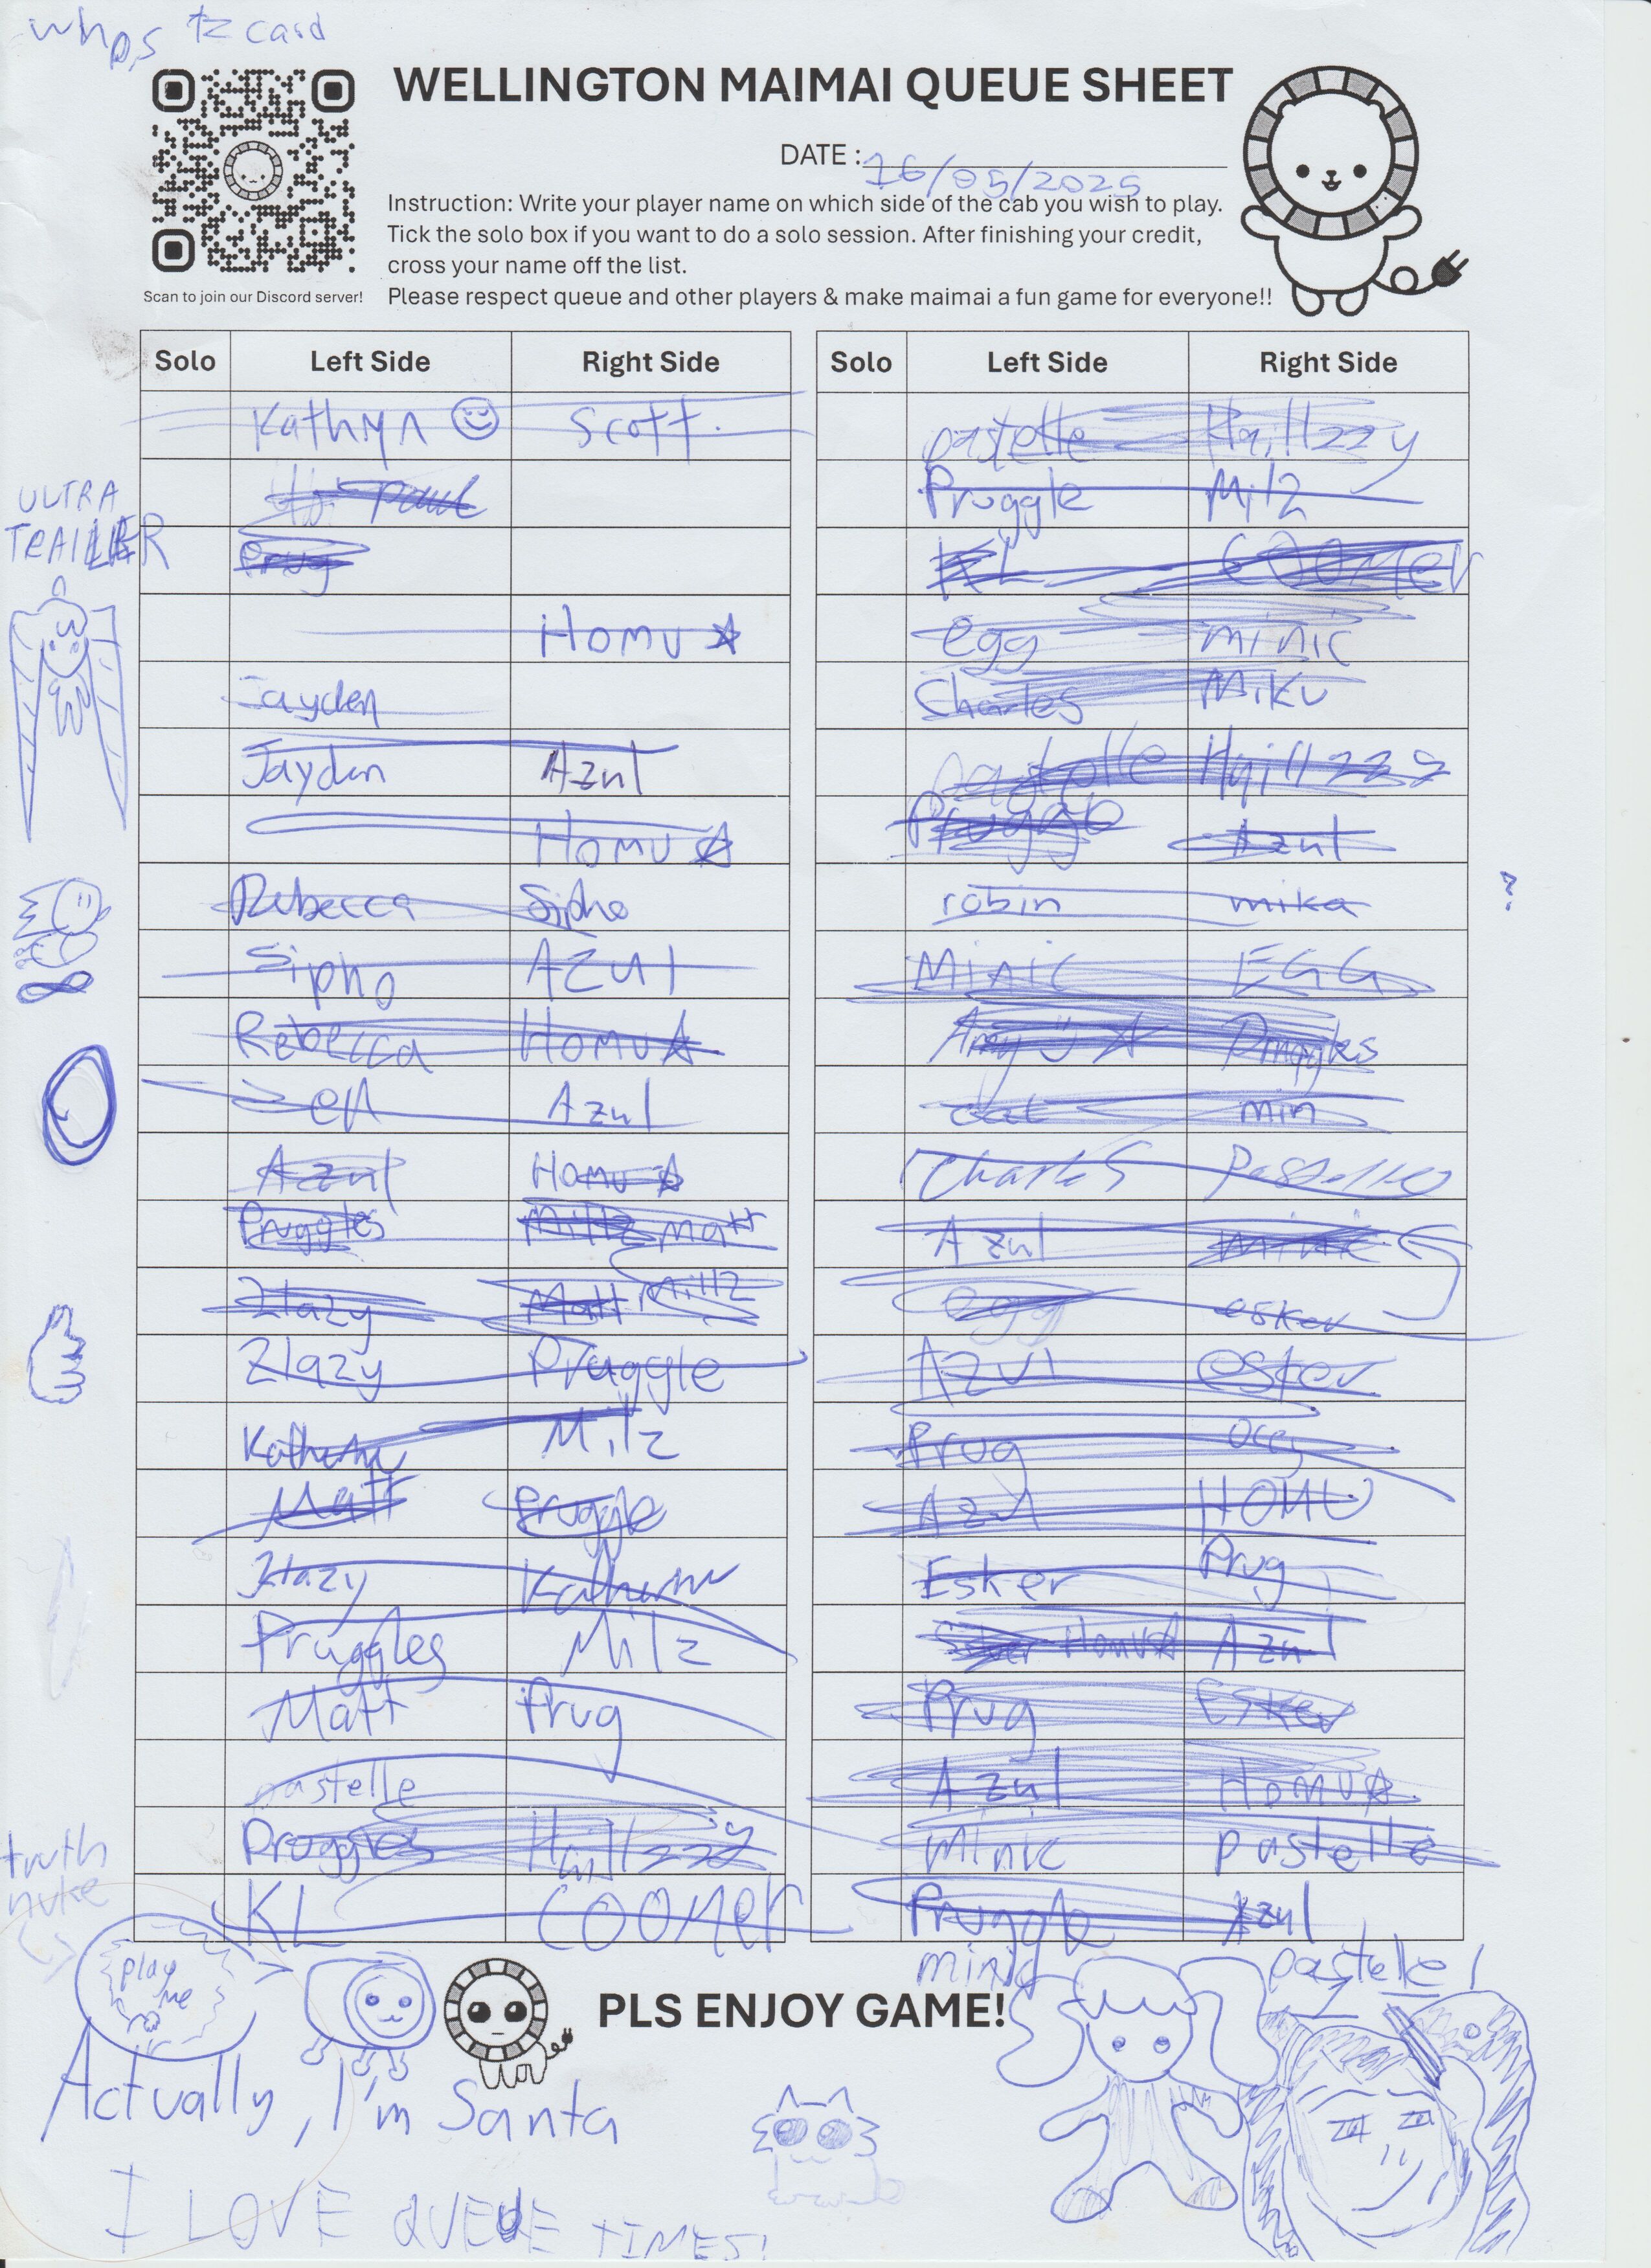 card
WELLINGTON MAIMAI QUEUE SHEET
DATE : 16/05/2025
Instruction: Write your player name on which side of the cab you wish to play.
Tick the solo box if you want to do a solo session. After finishing your credit,
cross your name off the list.
Please respect queue and other players & make maimai a fun game for everyone!!
Scan to join our Discord server!
Solo Left Side Right Side
Kathryn Scott.
Paul
Prug
Homu ☆
Jayden
Jayden Azul
Homu ☆
Rebecca Sipho
Sipho Azul
Rebecca Homu ☆
Azul
Azul Homu ☆
Pruggles Millz Matt
Zlazy Matt Millz
Zlazy Pruggle
Milz
Matt Pruggle
Zlazy
Pruggles Milz
Matt Prug
pastelle
Pruggles Haillzzy
KL COOMER
Solo Left Side Right Side
pastelle Haillzzy
Pruggle Milz
KL COOMER
egg minic
Charles Miku
pastelle Haillzzy
Azul
robin mika
?
Minic EGG
Pruggles
min
Charles Pastelle
Azul minic
egg esker
Azul esker
Prug
Azul HOMU
Esker Prug
Homu☆ Azul
Prug Esker
Azul Homu☆
Minic pastelle
Pruggle Azul
ULTRA
TRAILER
truth
nuke
play
me
PLS ENJOY GAME!
minic
pastelle!
Actually, I'm Santa
I LOVE QUEUE TIMES!